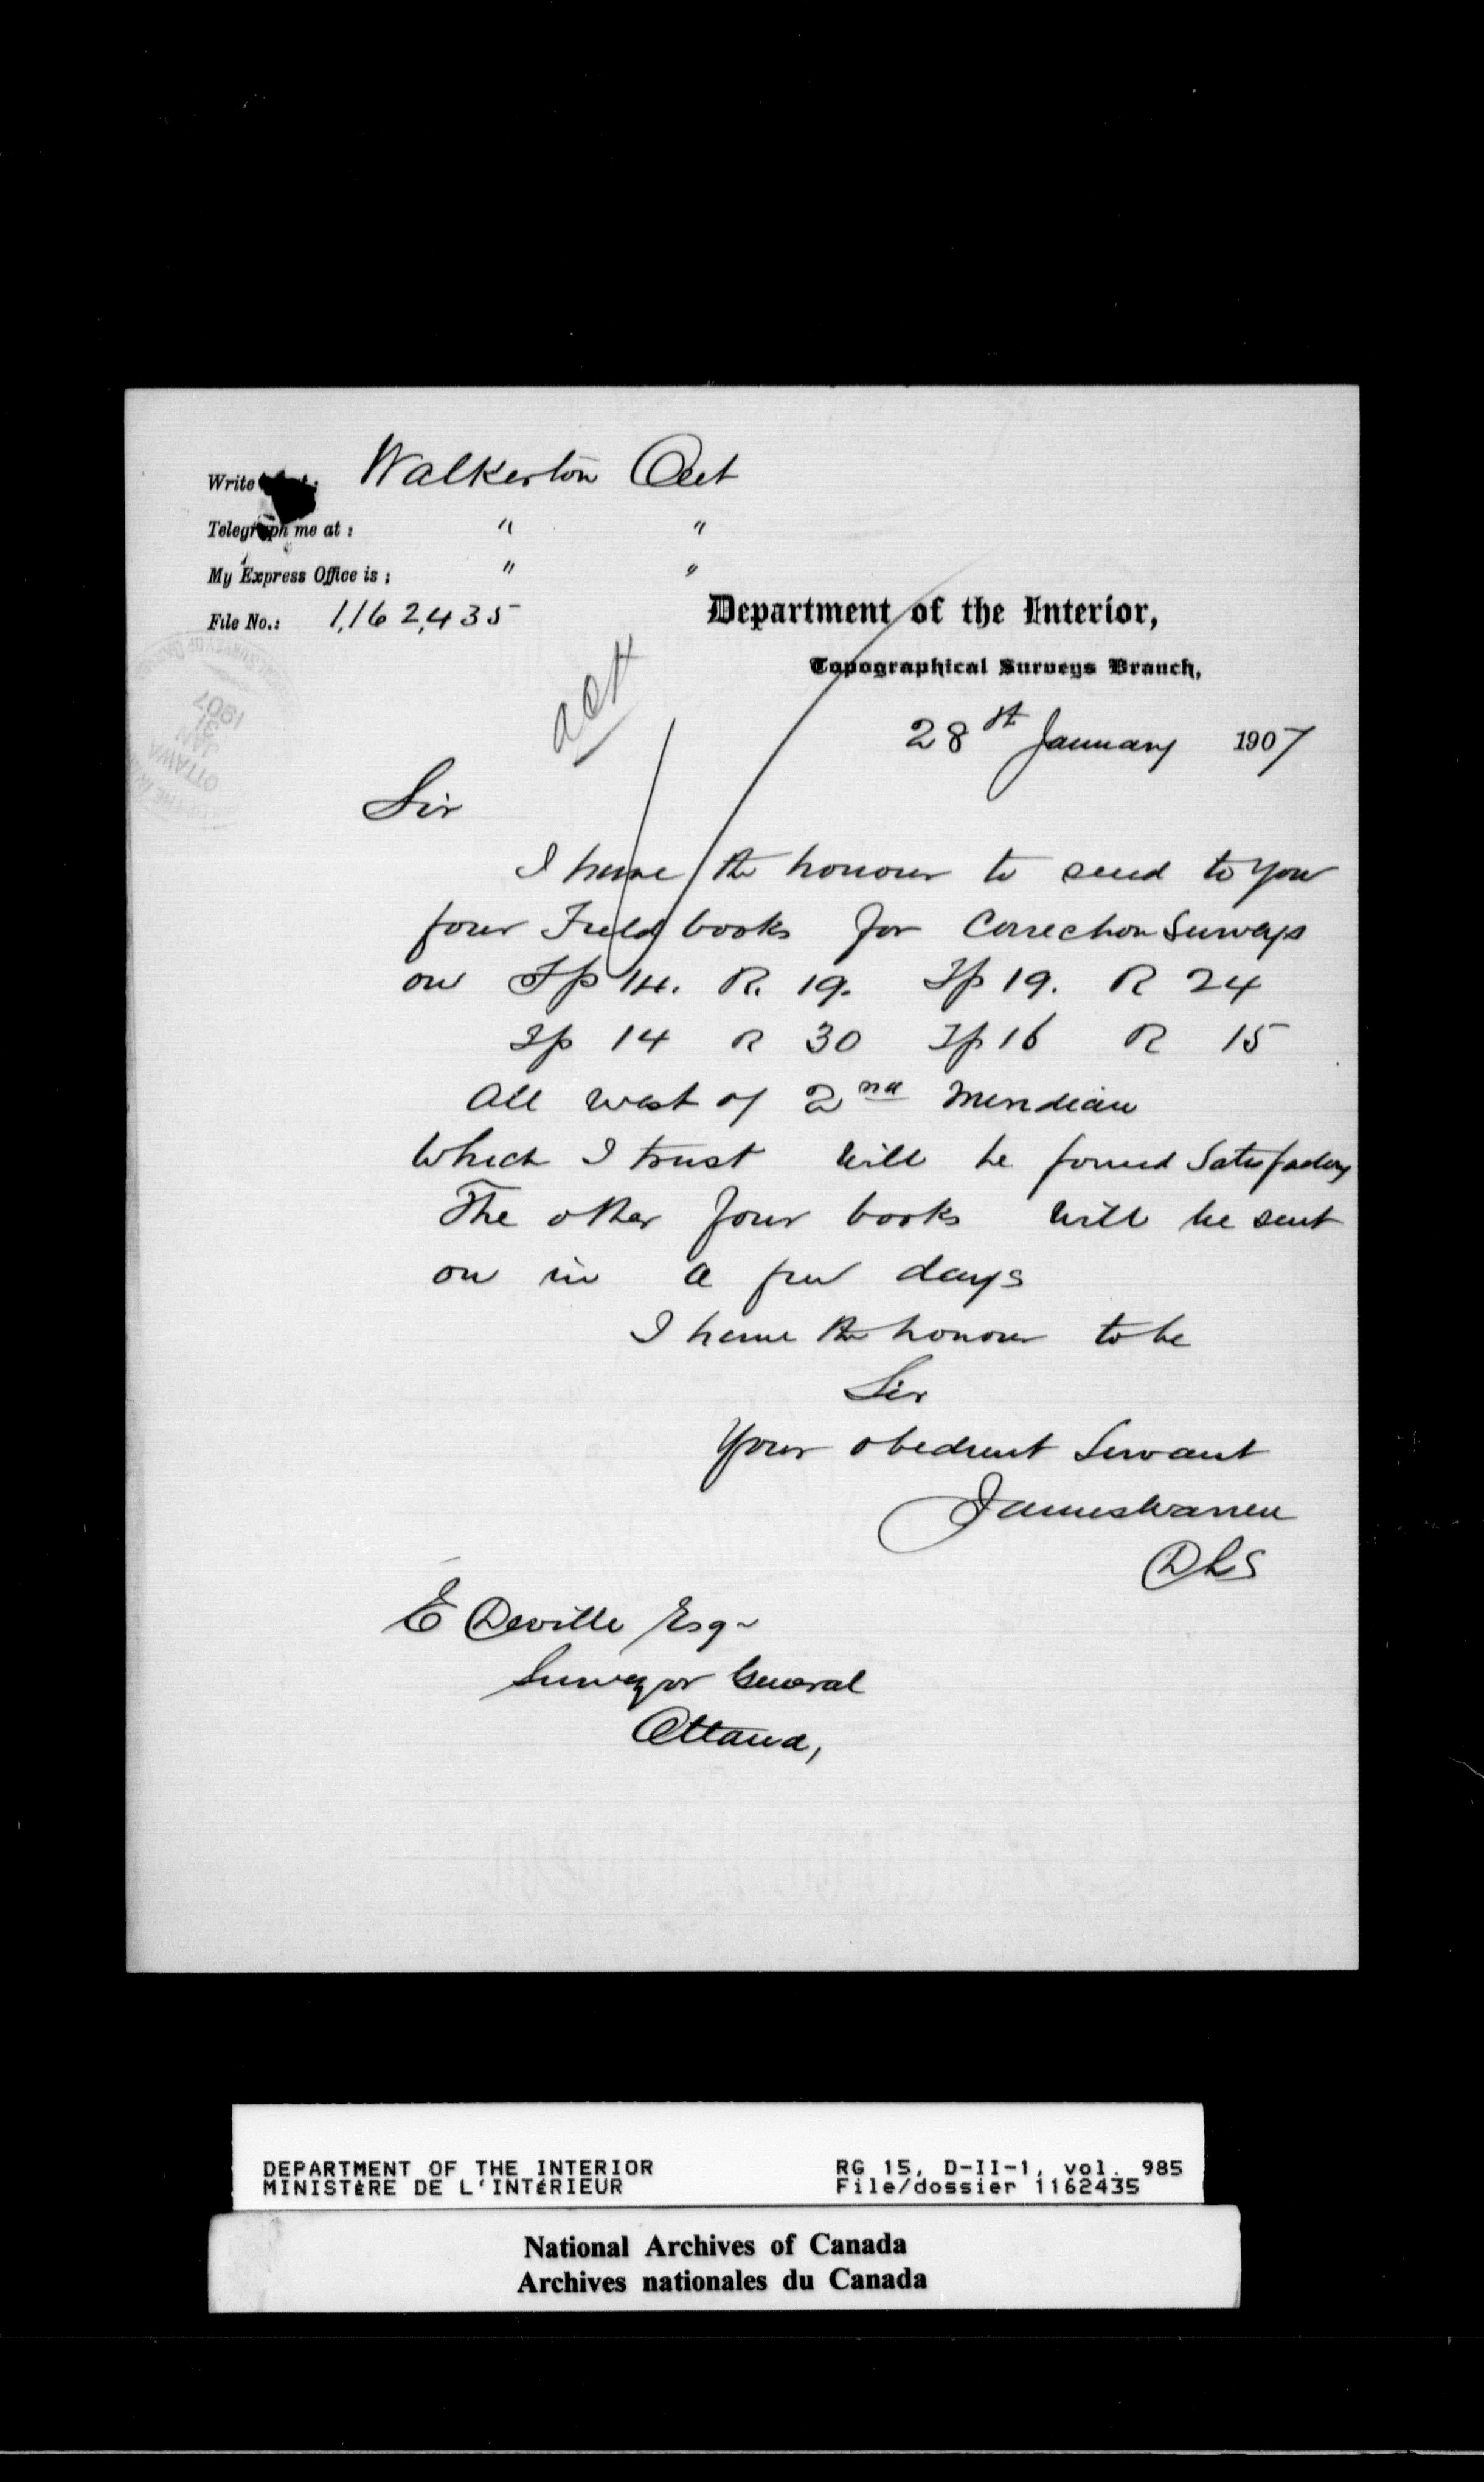 Write me at: Walkerton Ont
Telegraph me at: " "
My Express Office is: " "
File No.: 1,162,435
Department of the Interior,
Topographical Surveys Branch,
ack
OTTAWA
JAN
31
1907
28th January 1907
Sir
I have the honour to send to you
four Field books for Correction Surveys
on Tp 14. R. 19. Tp 19. R 24
Tp 14 R 30 Tp 16 R 15
All west of 2nd Meridian
Which I trust will be found Satisfactory
The other four books will be sent
on in a few days
I have the honour to be
Sir
Your obedient Servant
James Warren
DLS
E Deville Esq-
Surveyor General
Ottawa,
DEPARTMENT OF THE INTERIOR RG 15, D-II-1, vol. 985
MINISTÈRE DE L'INTÉRIEUR File/dossier 1162435
National Archives of Canada
Archives nationales du Canada